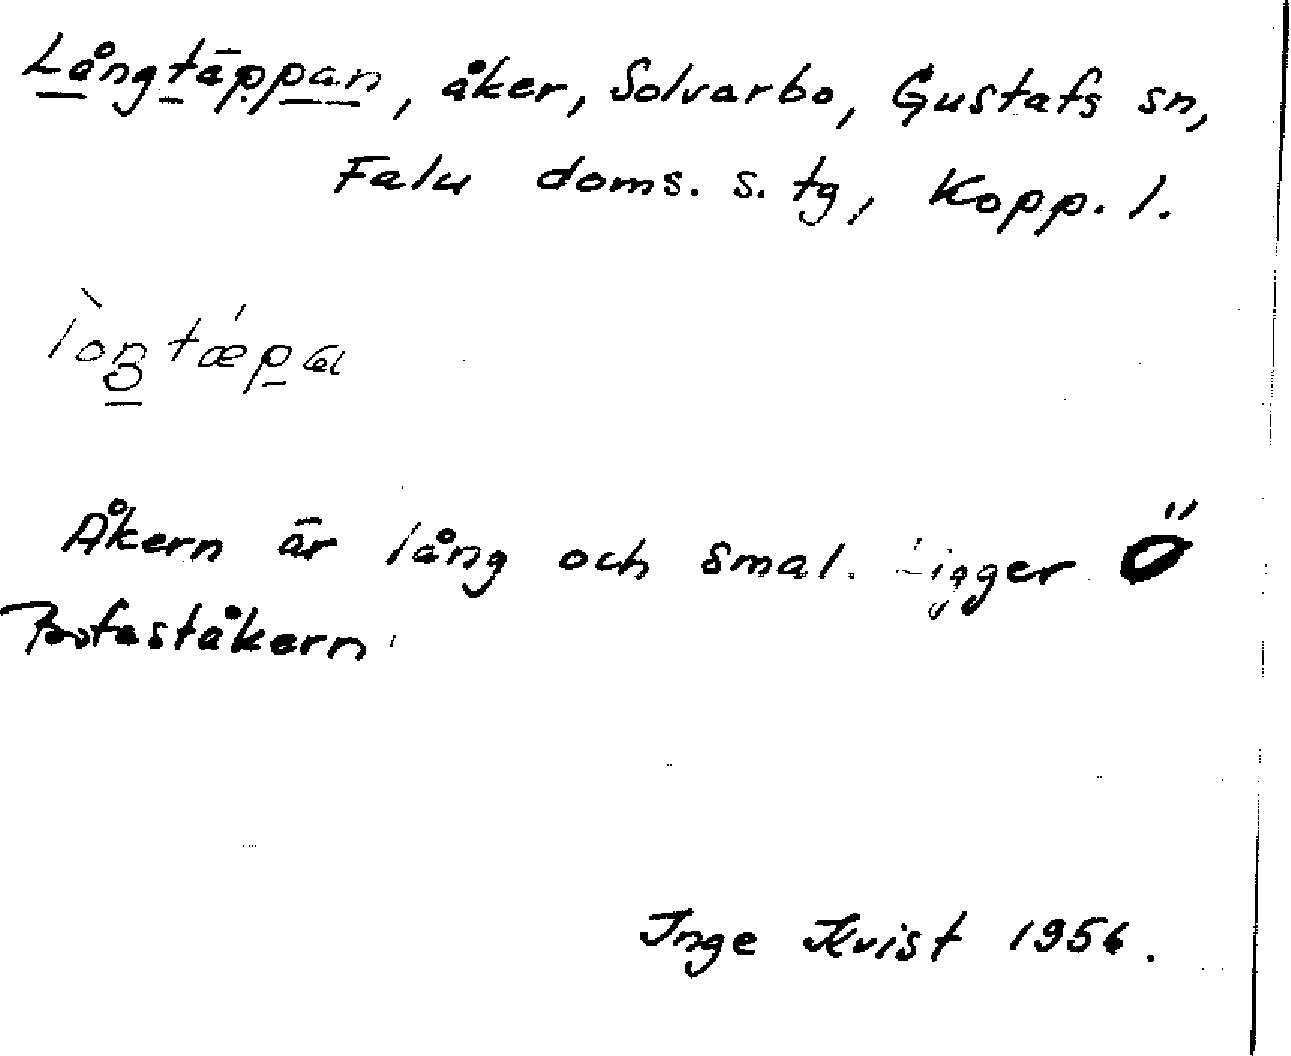 Långtäppan, åker, Solvarbo, Gustafs sn,
Falu doms. s. tg, Kopp. l.
Åkern är lång och smal. Ligger Ö
Profaståkern.
Inge Kvist 1956.